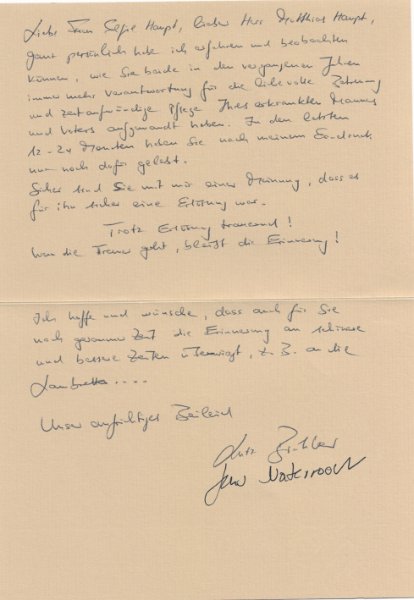 Liebe Frau Haupt, lieber Herr Matthias Haupt,
ganz persönlich habe ich erfahren und beobachten
können, wie Sie beide in den vergangenen Jahren
immer mehr Verantwortung für die liebevolle
und zeitaufwändige Pflege Ihres erkrankten Mannes
und Vaters aufgewandt haben. In den letzten
12-24 Monaten haben Sie nach meinem Eindruck
nur noch dafür gelebt.
Sicher sind Sie mit mir einer Meinung, dass es
für ihn sicher eine Erlösung war.
Trotz Erlösung trauernd!
Wenn die Trauer geht, bleibt die Erinnerung!
Ich hoffe und wünsche, dass auch für Sie
nach gewisser Zeit die Erinnerung an schönere
und bessere Zeiten überwiegt, z. B. an die
Lambretta ....
Unser aufrichtiges Beileid